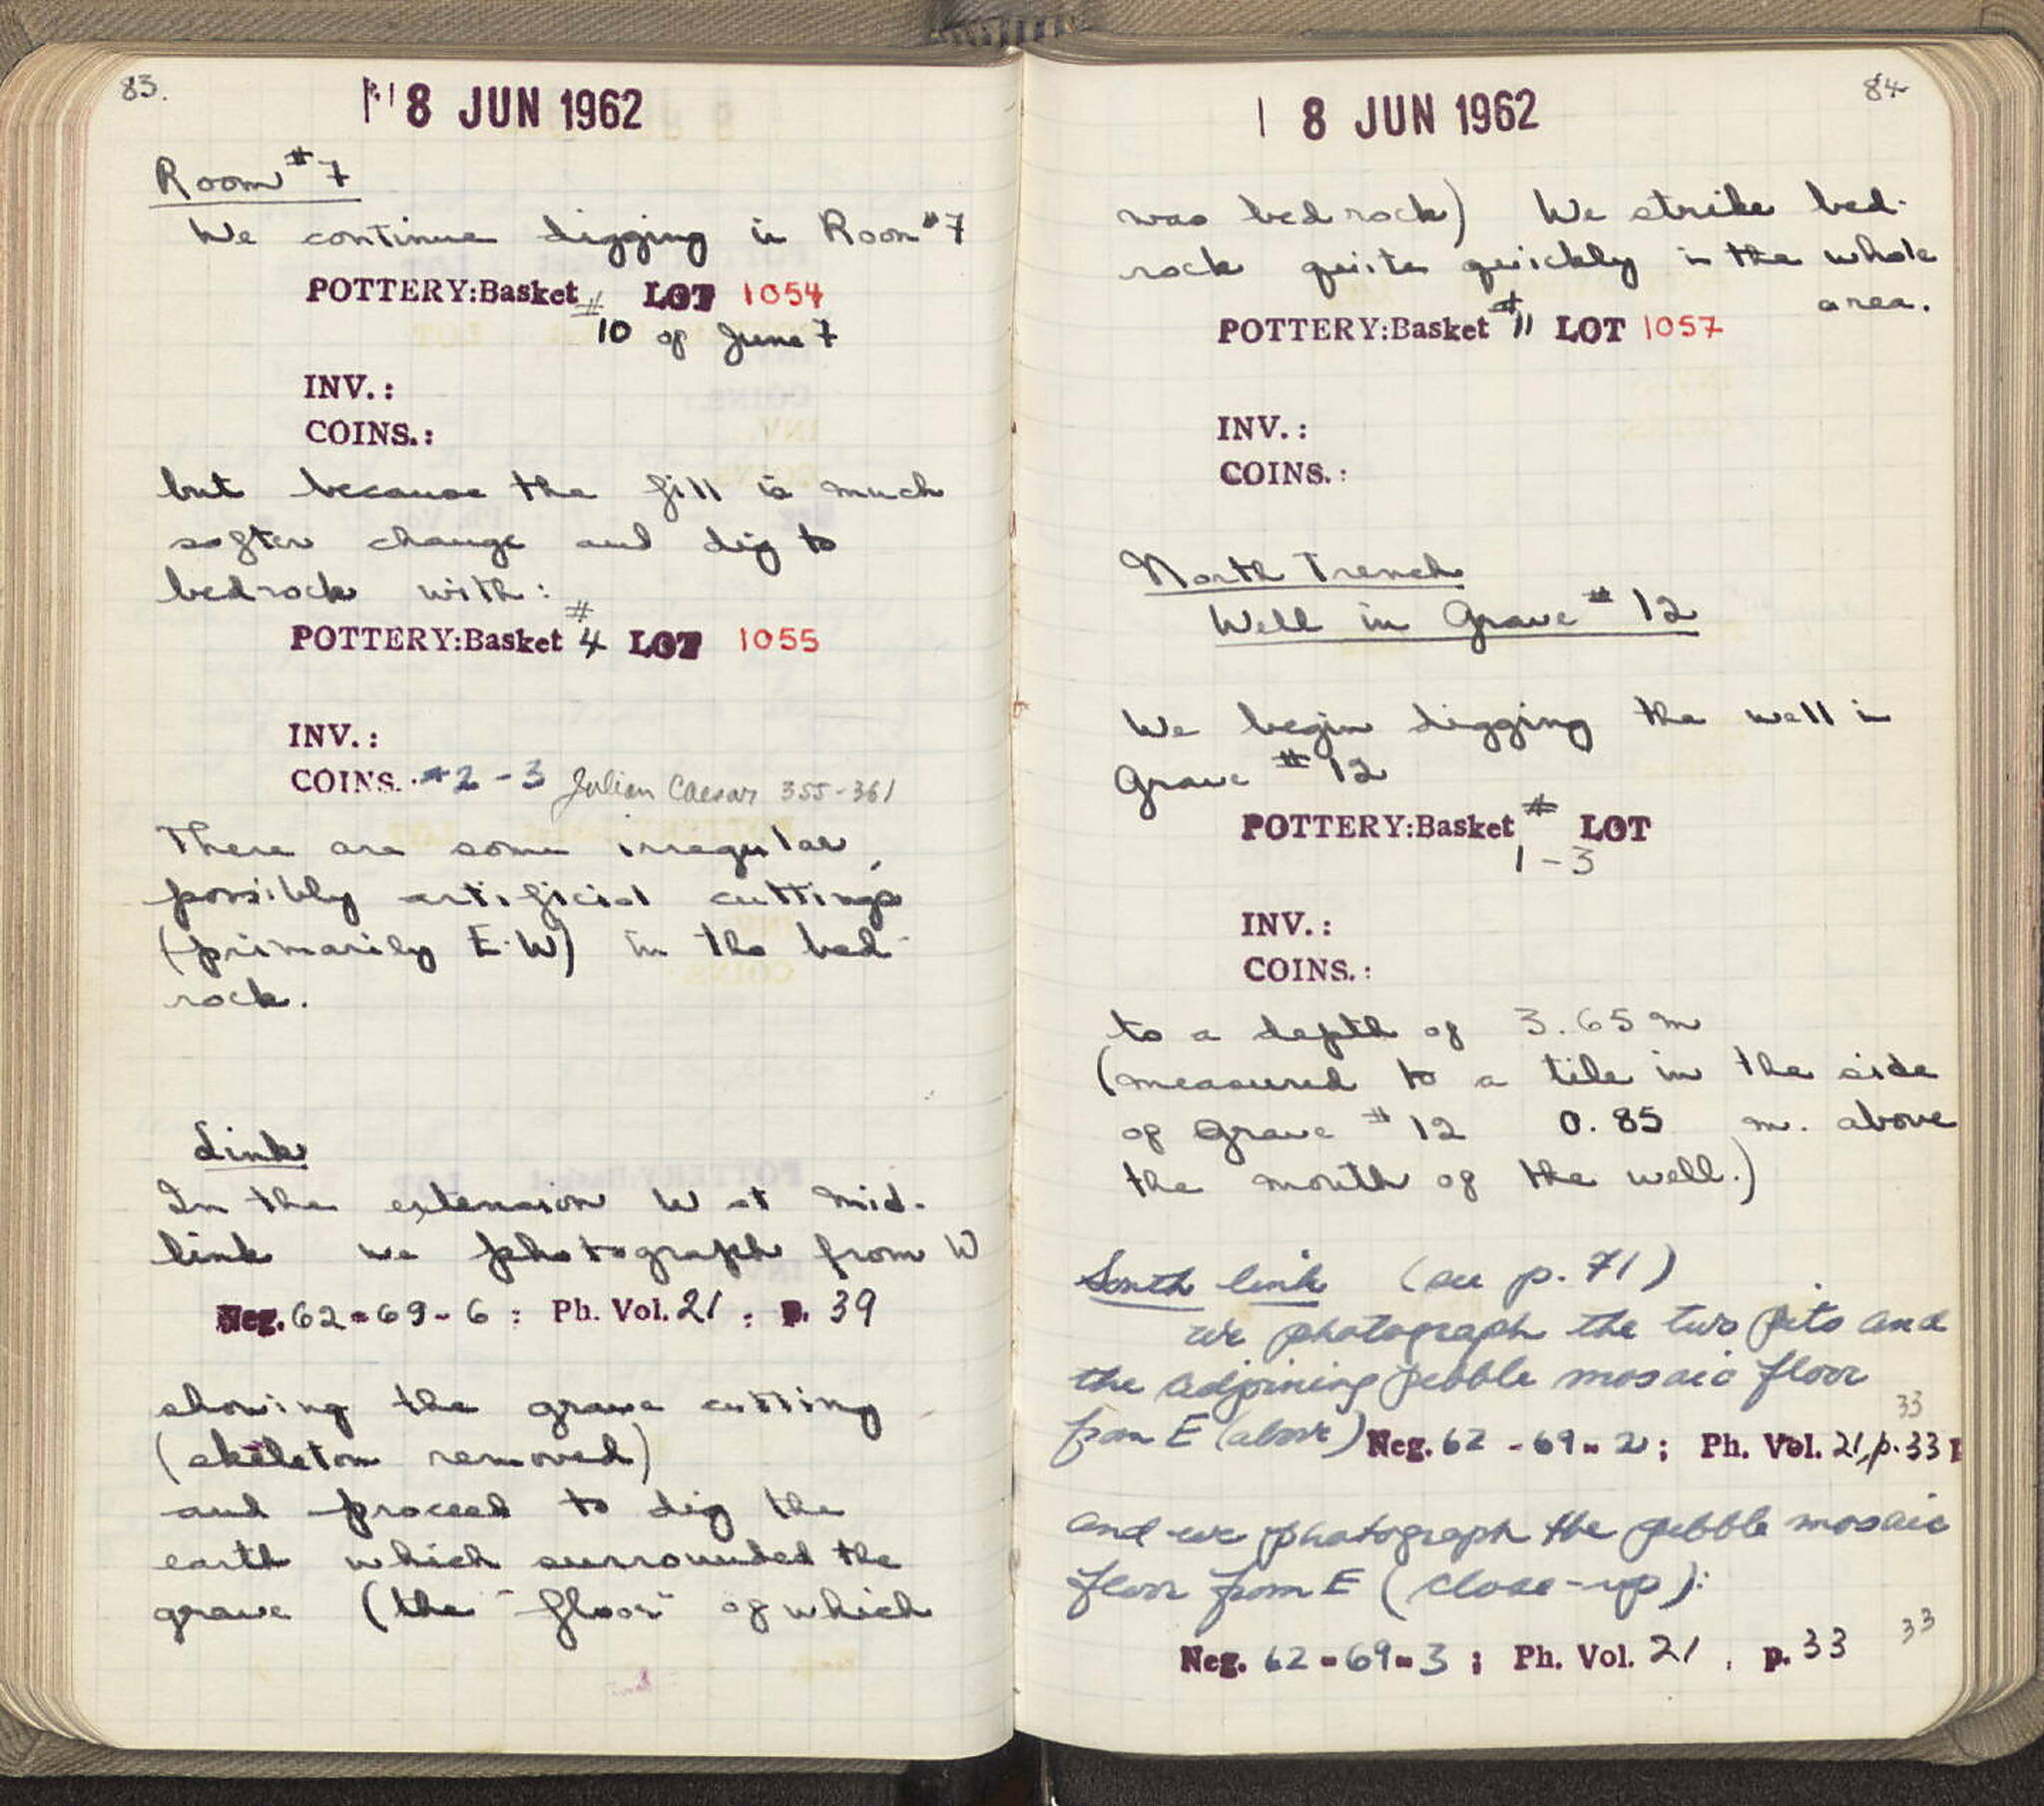 83.
8 JUN 1962
Room #7
We continue digging in Room #7
POTTERY:Basket # LOT 1054
10 of June 7
INV.:
COINS.:
but because the fill is much
softer change and dig to
bedrock with:
POTTERY:Basket #4 LOT 1055
INV.:
COINS. #2-3 Julian Caesar 355-361
There are some irregular,
possibly artificial cuttings
(primarily E-W) in the bed-
rock.
Link
In the extension W at mid-
link we photograph from W
Neg. 62-69-6 ; Ph. Vol. 21 , p. 39
showing the grave cutting
(skeleton removed)
and proceed to dig the
earth which surrounded the
grave (the "floor" of which
84
8 JUN 1962
was bedrock) We strike bed-
rock quite quickly in the whole
area.
POTTERY:Basket #11 LOT 1057
INV.:
COINS.:
North Trench
Well in Grave #12
We begin digging the well in
Grave #12
POTTERY:Basket # LOT
1-3
INV.:
COINS.:
to a depth of 3.65 m
(measured to a tile in the side
of Grave #12 0.85 m. above
the mouth of the well.)
South link (see p. 71)
we photograph the two pits and
the adjoining pebble mosaic floor
33
from E (above) Neg. 62-69-2 ; Ph. Vol. 21, p. 33
and we photograph the pebble mosaic
floor from E (close-up):
33
Neg. 62-69-3 ; Ph. Vol. 21 , p. 33